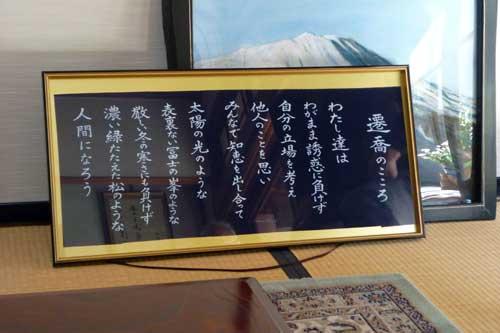 遷喬のこころ
わたし達は
わがまま誘惑に負けず
自分の立場を考え
他人のことを思い
みんなで知恵を出し合って
太陽の光のような
表裏ない富士の峯のような
厳しい冬の寒さにも負けず
濃い緑たたえた松のような
人間になろう